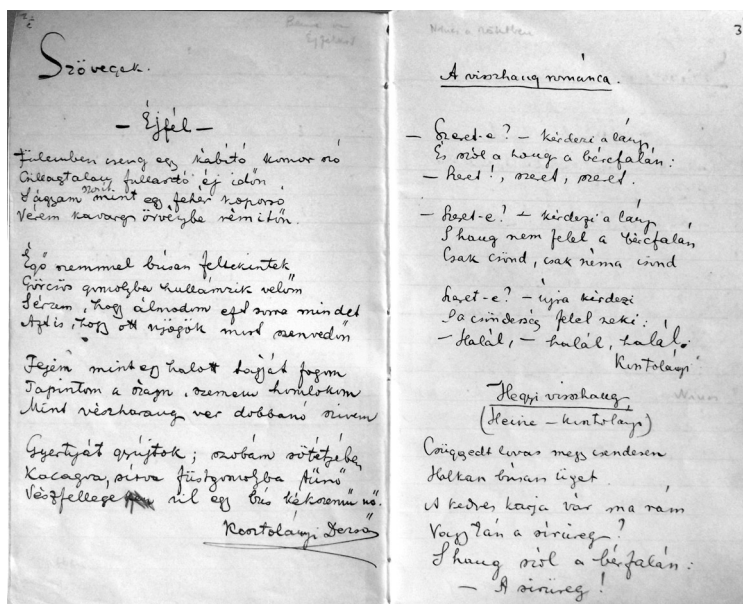 Szövegek.
– Éjfél –
Fülemben cseng egy kábító komor szó
Csillagtalan, fullasztó éj időn
Ágyam szörnyű mint egy fehér koporsó
Vérem kavarg örvénybe rémítőn.
Égő szemmel búsan feltekintek
Görcsös gomolyba hullámzik velőm
Sérzem, hogy álmodom ezt sorra mindet
Azt is, hogy ott nyögök mint szenvedőn
Fejém mint egy halott fajját fogom
Tapintom a szám, szemem homlokom
Mint vészharang ver dobbanó szivem
Gyertyját gyújtok; szobám sötétjébe,
Kacagva, sírva füstgomolyba tűnő
Vészfellege ül egy bús kékszemű nő.
Kosztolányi Dezső
3
A visszhang románca.
– Szeret-e? – kérdezi a lány
És szól a hang a bércfalán:
– Szeret!, szeret, szeret.
– Szeret-e? – kérdezi a lány
S hang nem felel a bércfalán
Csak csönd, csak néma csönd
Szeret-e? – újra kérdezi
S a csöndesség felel neki:
– Halál, – halál, halál.
Kosztolányi
Hegyi visszhang
(Heine – Kosztolányi)
Csüggedt lovas megy csendesen
Halkan búsan üget.
A kedves karja vár ma rám
Vagy tán a sirüreg?
S hang szól a bérfalán:
– A sirüreg!